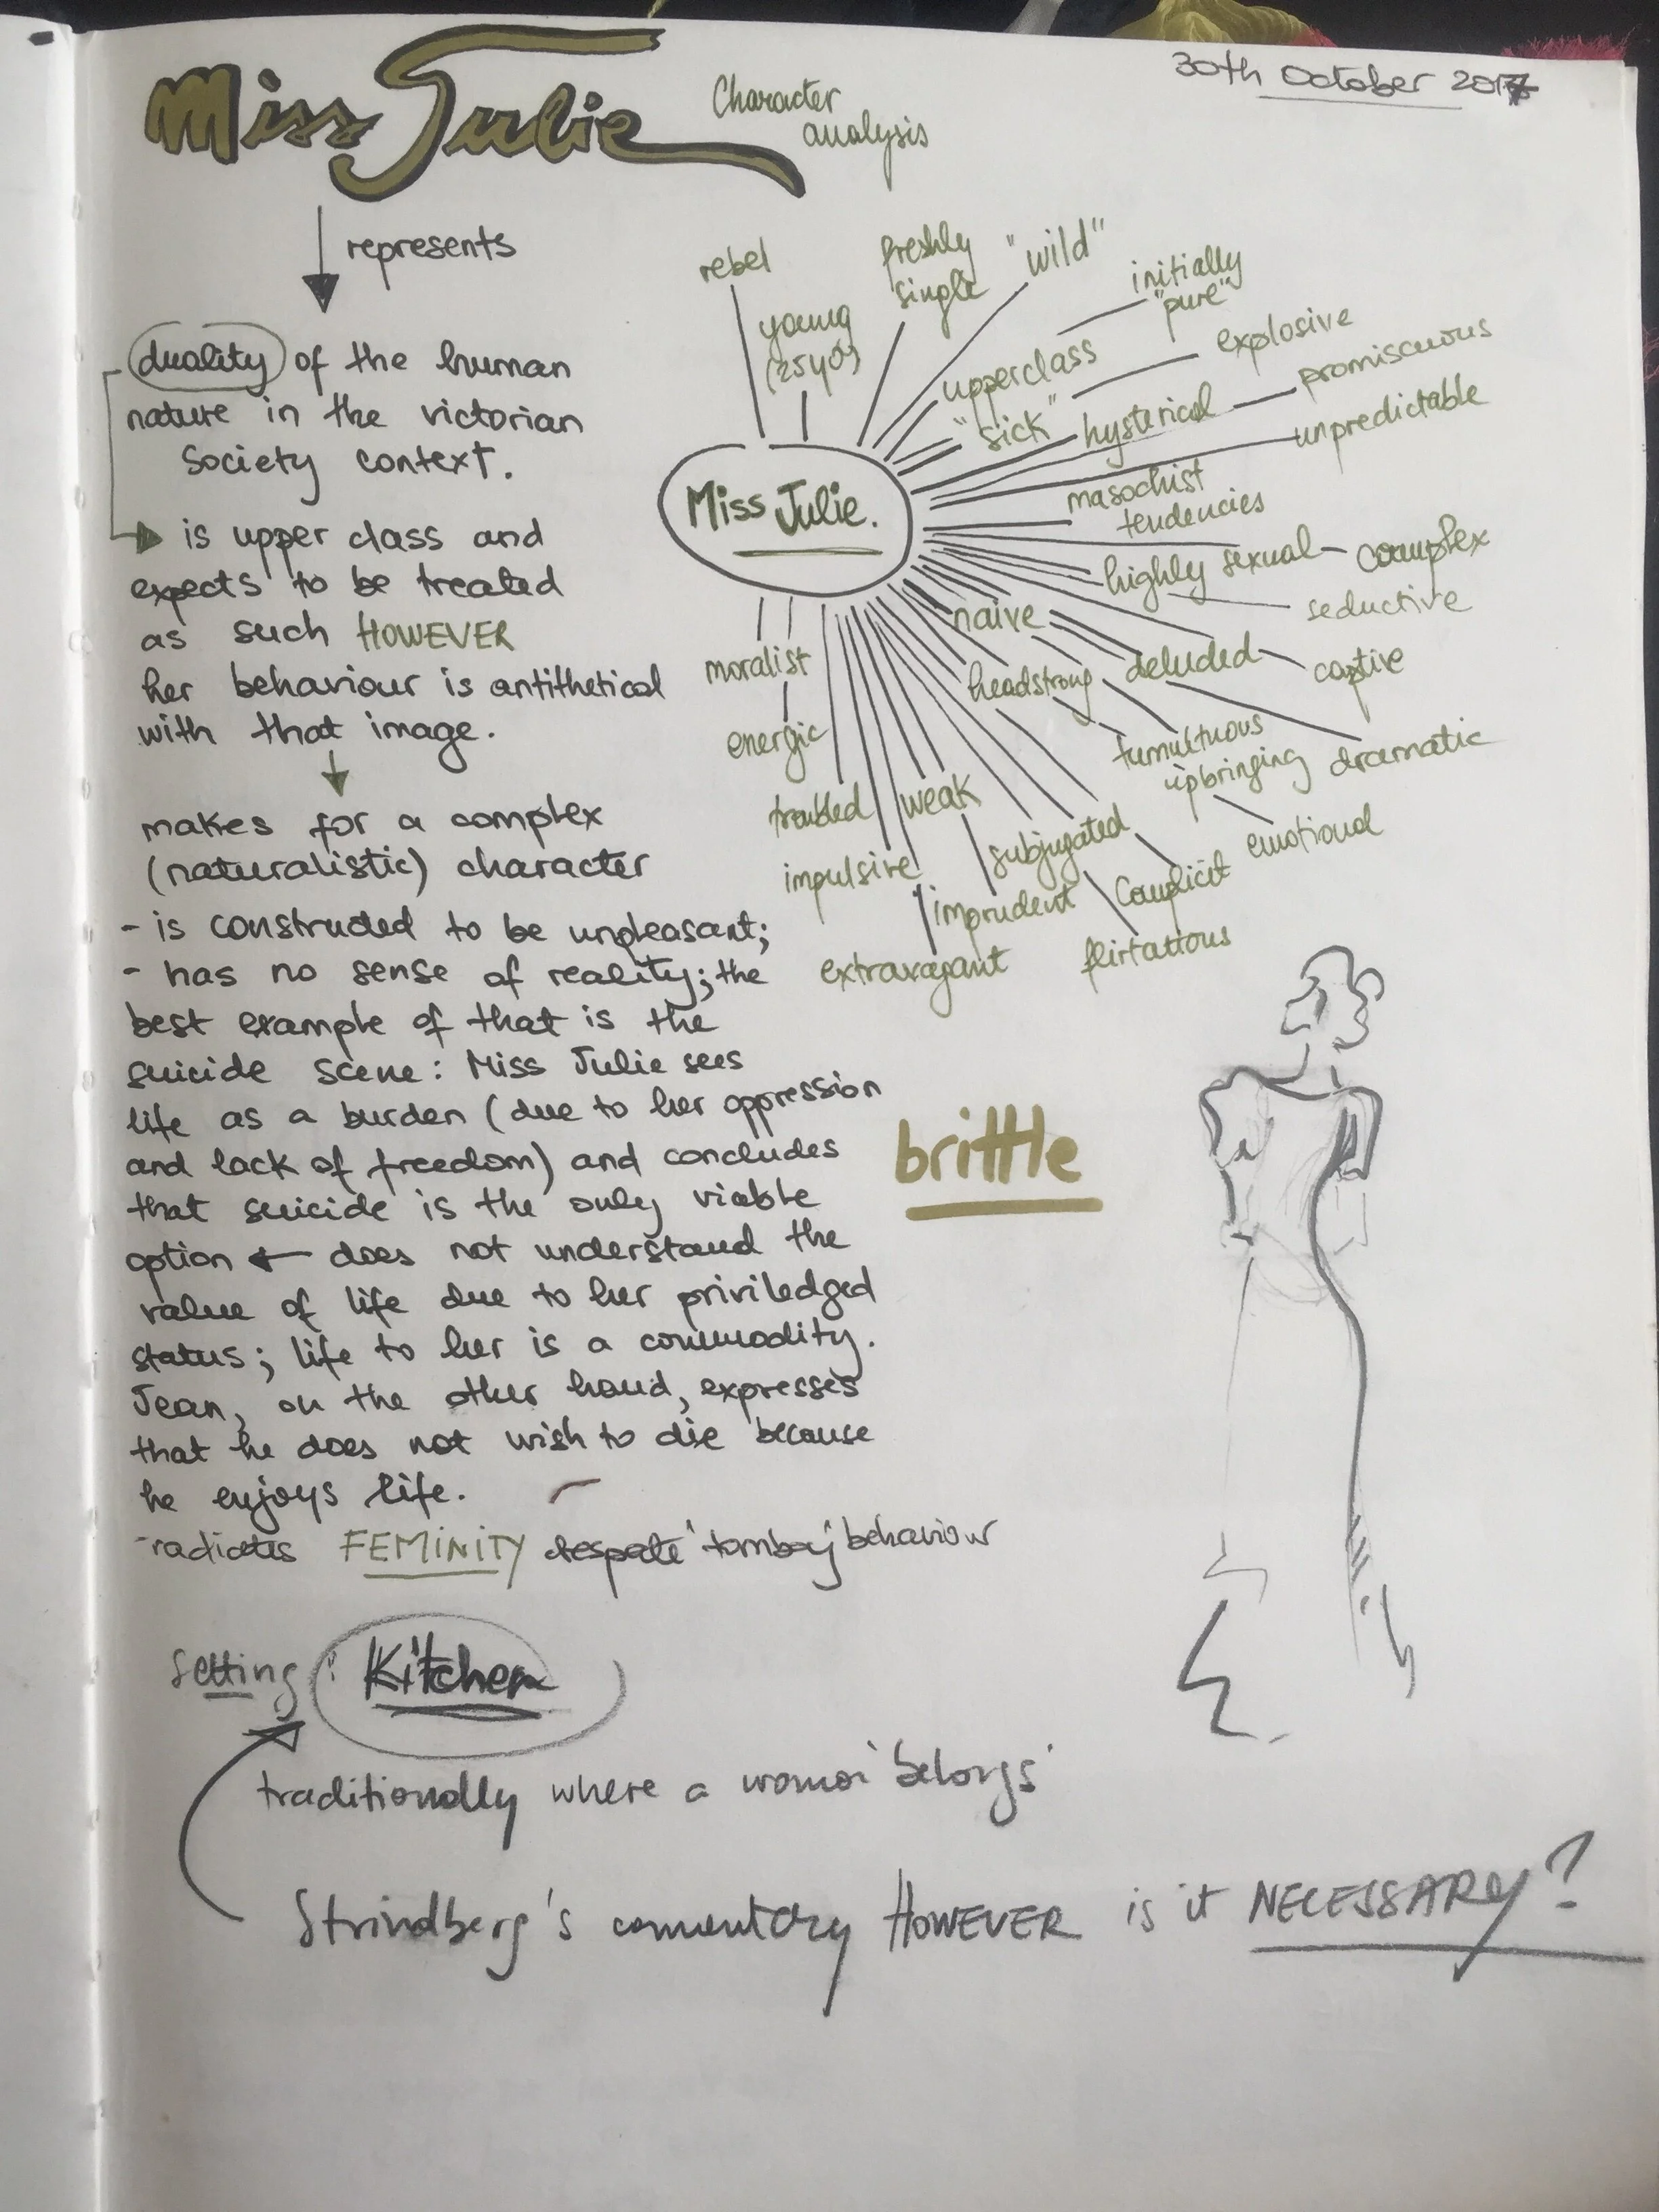 30th October 2017
Miss Julie
Character
analysis
represents
duality of the human
nature in the victorian
Society context.
is upper class and
expects to be treated
as such HOWEVER
her behaviour is antithetical
with that image.
makes for a complex
(naturalistic) character
- is constructed to be unpleasant;
- has no sense of reality; the
best example of that is the
suicide scene: Miss Julie sees
life as a burden (due to her oppression
and lack of freedom) and concludes
that suicide is the only viable
option ← does not understand the
value of life due to her priviledged
status; life to her is a commodity.
Jean, on the other hand, expresses
that he does not wish to die because
he enjoys life.
-radiates FEMINITY despate 'tomboy' behaviour
rebel
young
(25yo)
freshly
single
"wild"
initially
"pure"
upperclass
explosive
"sick"
hysterical
promiscuous
unpredictable
Miss Julie.
masochist
tendencies
highly sexual
complex
seductive
naive
deluded
captive
headstrong
tumultuous
upbringing
dramatic
emotional
moralist
energic
troubled
weak
subjugated
complicit
impulsive
imprudent
flirtatious
extravagant
brittle
Setting: Kitchen
traditionally where a woman 'belongs'
Strindberg's comentary HOWEVER is it NECESSARY?